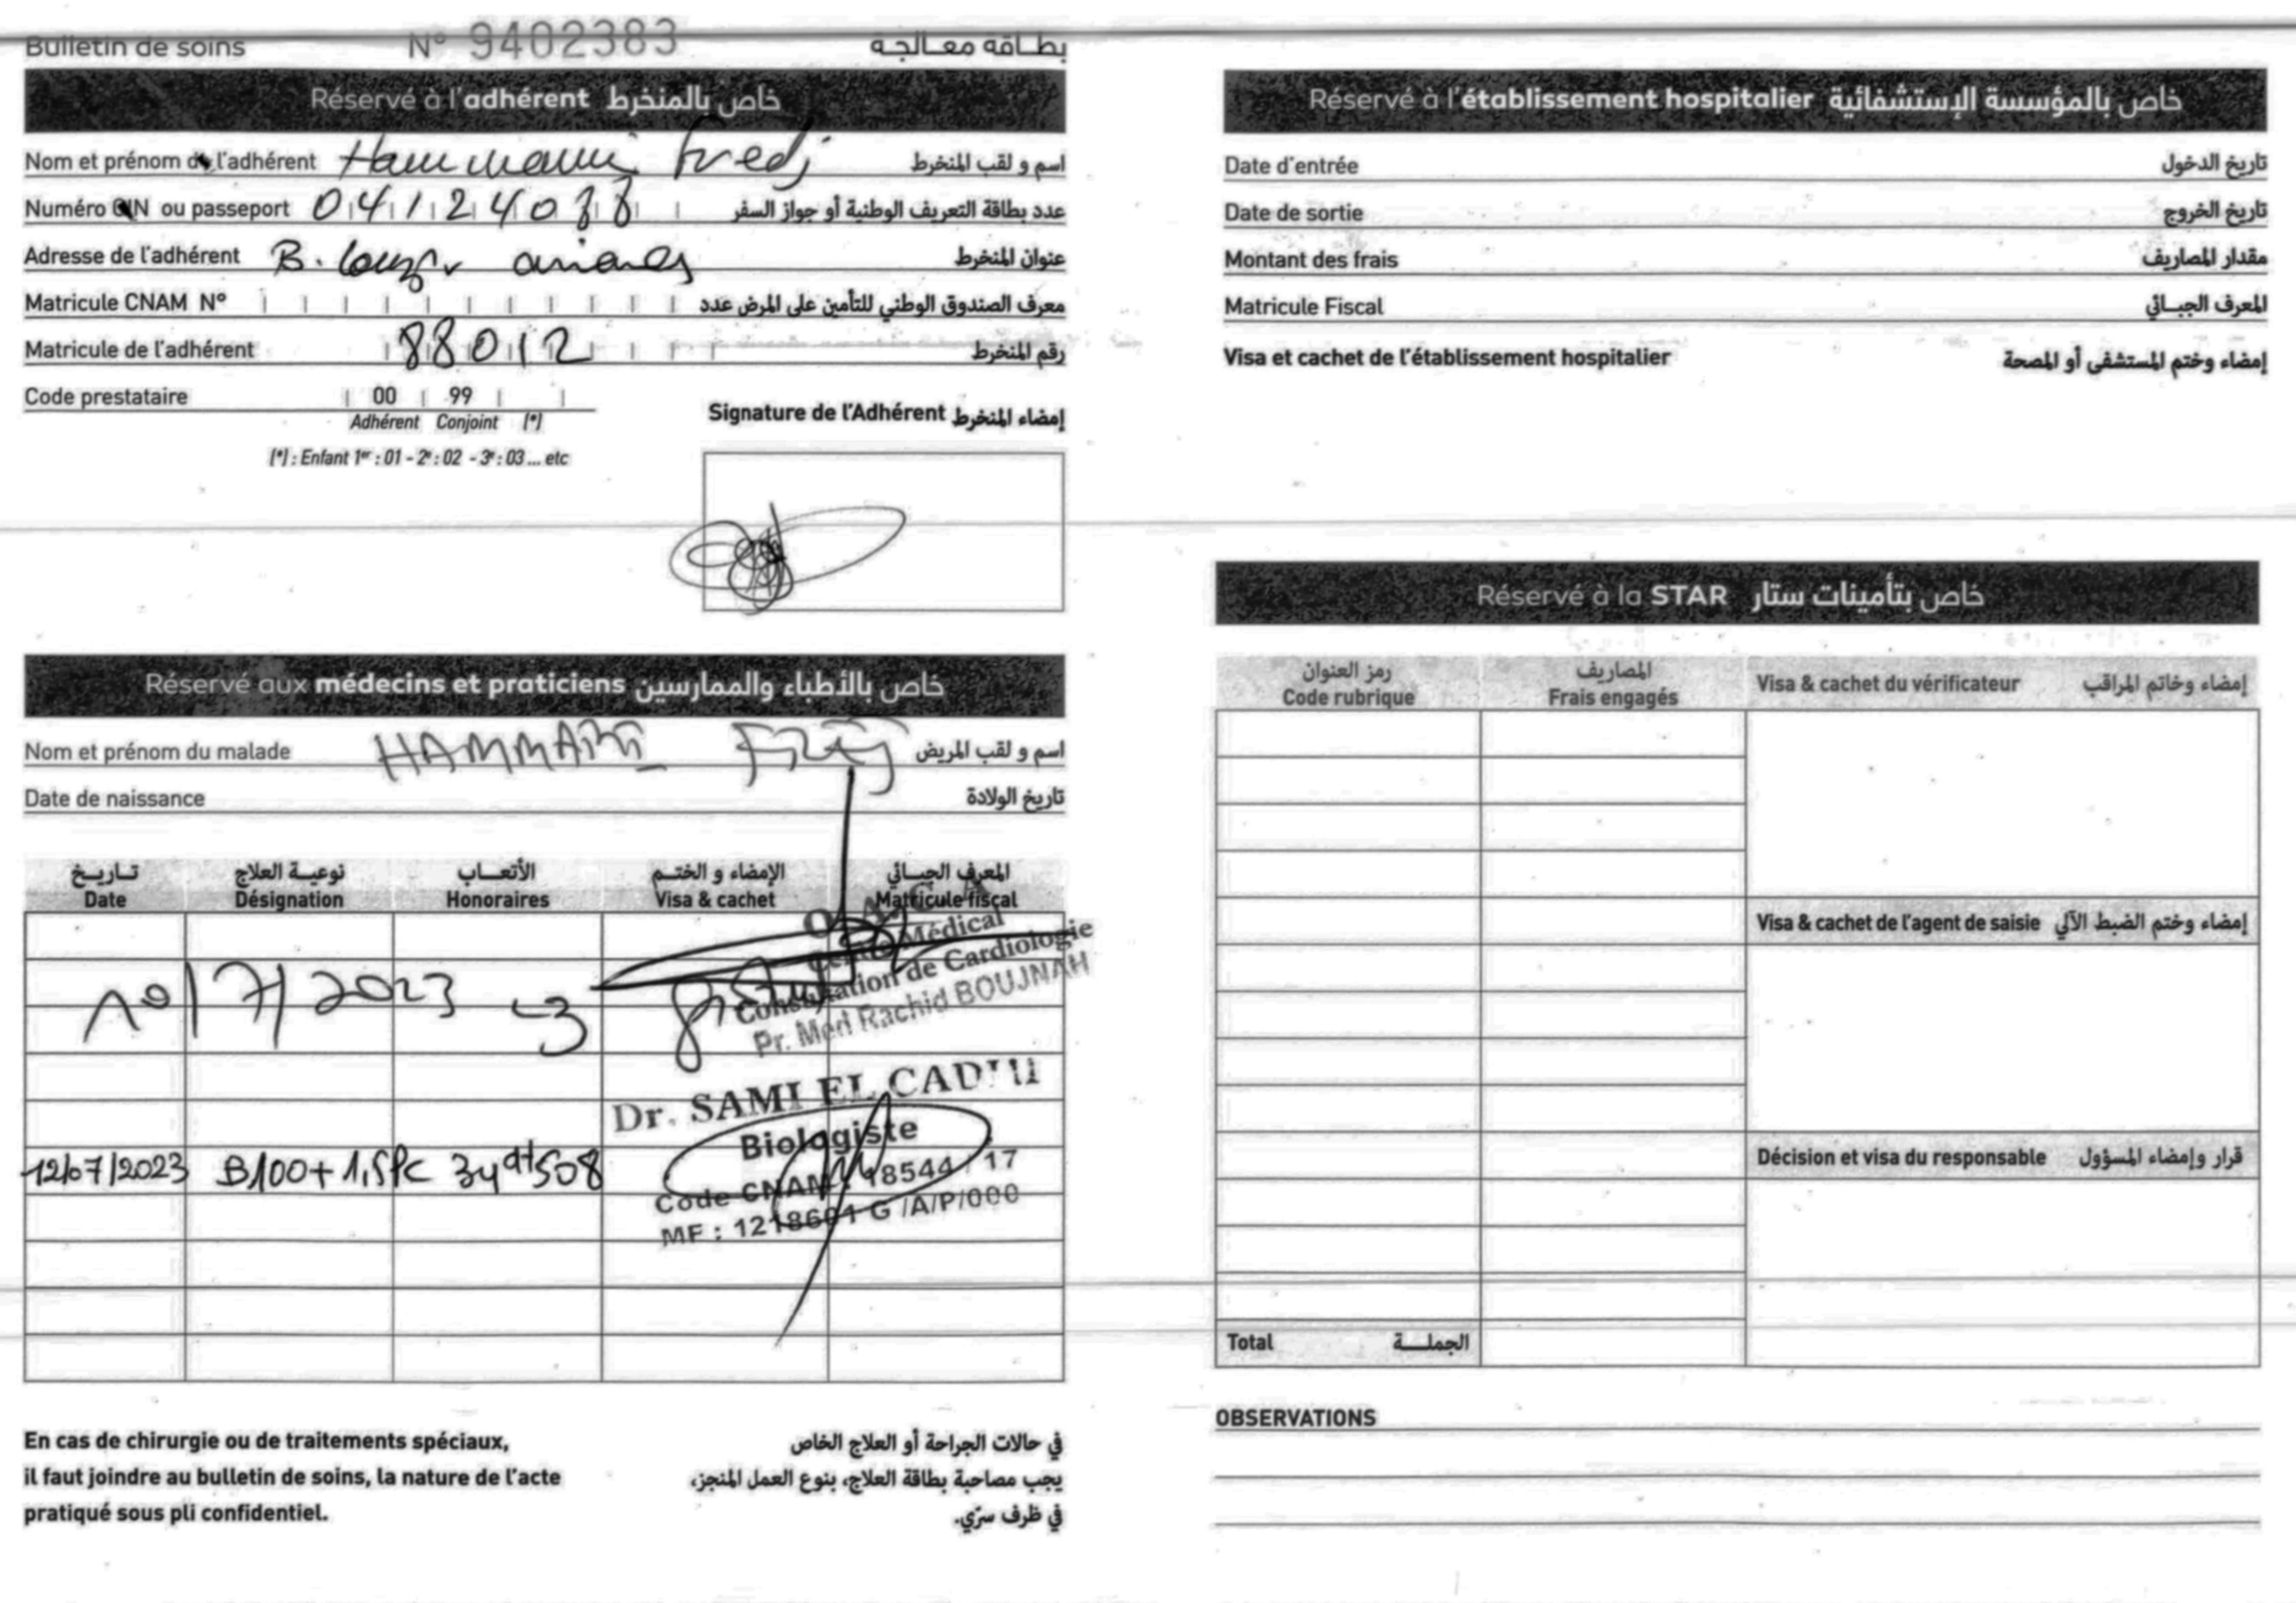 Bulletin de soins N° 9402383 بطاقة معالجة
Réservé à l'adhérent خاص بالمنخرط
Nom et prénom de l'adhérent Hammami Fredj اسم و لقب المنخرط
Numéro CIN ou passeport عدد بطاقة التعريف الوطنية أو جواز السفر
Adresse de l'adhérent B. عنوان المنخرط
Matricule CNAM N° معرف الصندوق الوطني للتأمين على المرض عدد
Matricule de l'adhérent 88012 رقم المنخرط
Code prestataire 00 99
Adhérent Conjoint (*)
(*) : Enfant 1er : 01 - 2e : 02 - 3e : 03 ... etc
Signature de l'Adhérent إمضاء المنخرط
Réservé aux médecins et praticiens خاص بالأطباء والممارسين
Nom et prénom du malade HAMMAMI اسم و لقب المريض
Date de naissance تاريخ الولادة
تـاريـخ نوعيـة العلاج الأتعـــاب الإمضاء و الختـم المعرف الجبـــائي
Date Désignation Honoraires Visa & cachet Matricule fiscal
O.A.C.A
Centre Médical
Consultation de Cardiologie
Pr. Med Rachid BOUJNAH
10/7/2023
Dr. SAMI EL CADHI
Biologiste
12/07/2023 B100+1,5PC 34dt508
Code CNAM : 18544 / 17
MF : 1218601 G /A/P/000
En cas de chirurgie ou de traitements spéciaux,
il faut joindre au bulletin de soins, la nature de l'acte
pratiqué sous pli confidentiel.
في حالات الجراحة أو العلاج الخاص
يجب مصاحبة بطاقة العلاج، بنوع العمل المنجز،
في ظرف سرّي.
Réservé à l'établissement hospitalier خاص بالمؤسسة الإستشفائية
Date d'entrée تاريخ الدخول
Date de sortie تاريخ الخروج
Montant des frais مقدار المصاريف
Matricule Fiscal المعرف الجبـــائي
Visa et cachet de l'établissement hospitalier إمضاء وختم المستشفى أو المصحة
Réservé à la STAR خاص بتأمينات ستار
رمز العنوان المصاريف
Code rubrique Frais engagés Visa & cachet du vérificateur إمضاء وخاتم المراقب
Visa & cachet de l'agent de saisie إمضاء وختم الضبط الآلي
Décision et visa du responsable قرار وإمضاء المسؤول
Total الجملـــة
OBSERVATIONS